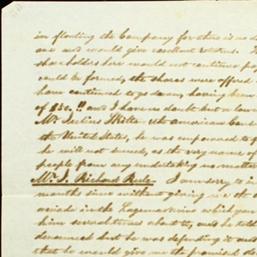 in floating the Company for there is no d
one and would give excellent returns. T
shareholders here would not continue pay
could be formed, the shares were offered
have continued to go down, having been
of 85c.!! and I have no doubt but a law
Mr. the American Cons
the United States, he was empowered to
he will not succeed, as the very name of
people from any undertaking no matter
Mr. J. Richard I am sorry to in
months since without giving me the
in the which you
him about it, and he told
but he was defending it and
that he would give me the promised